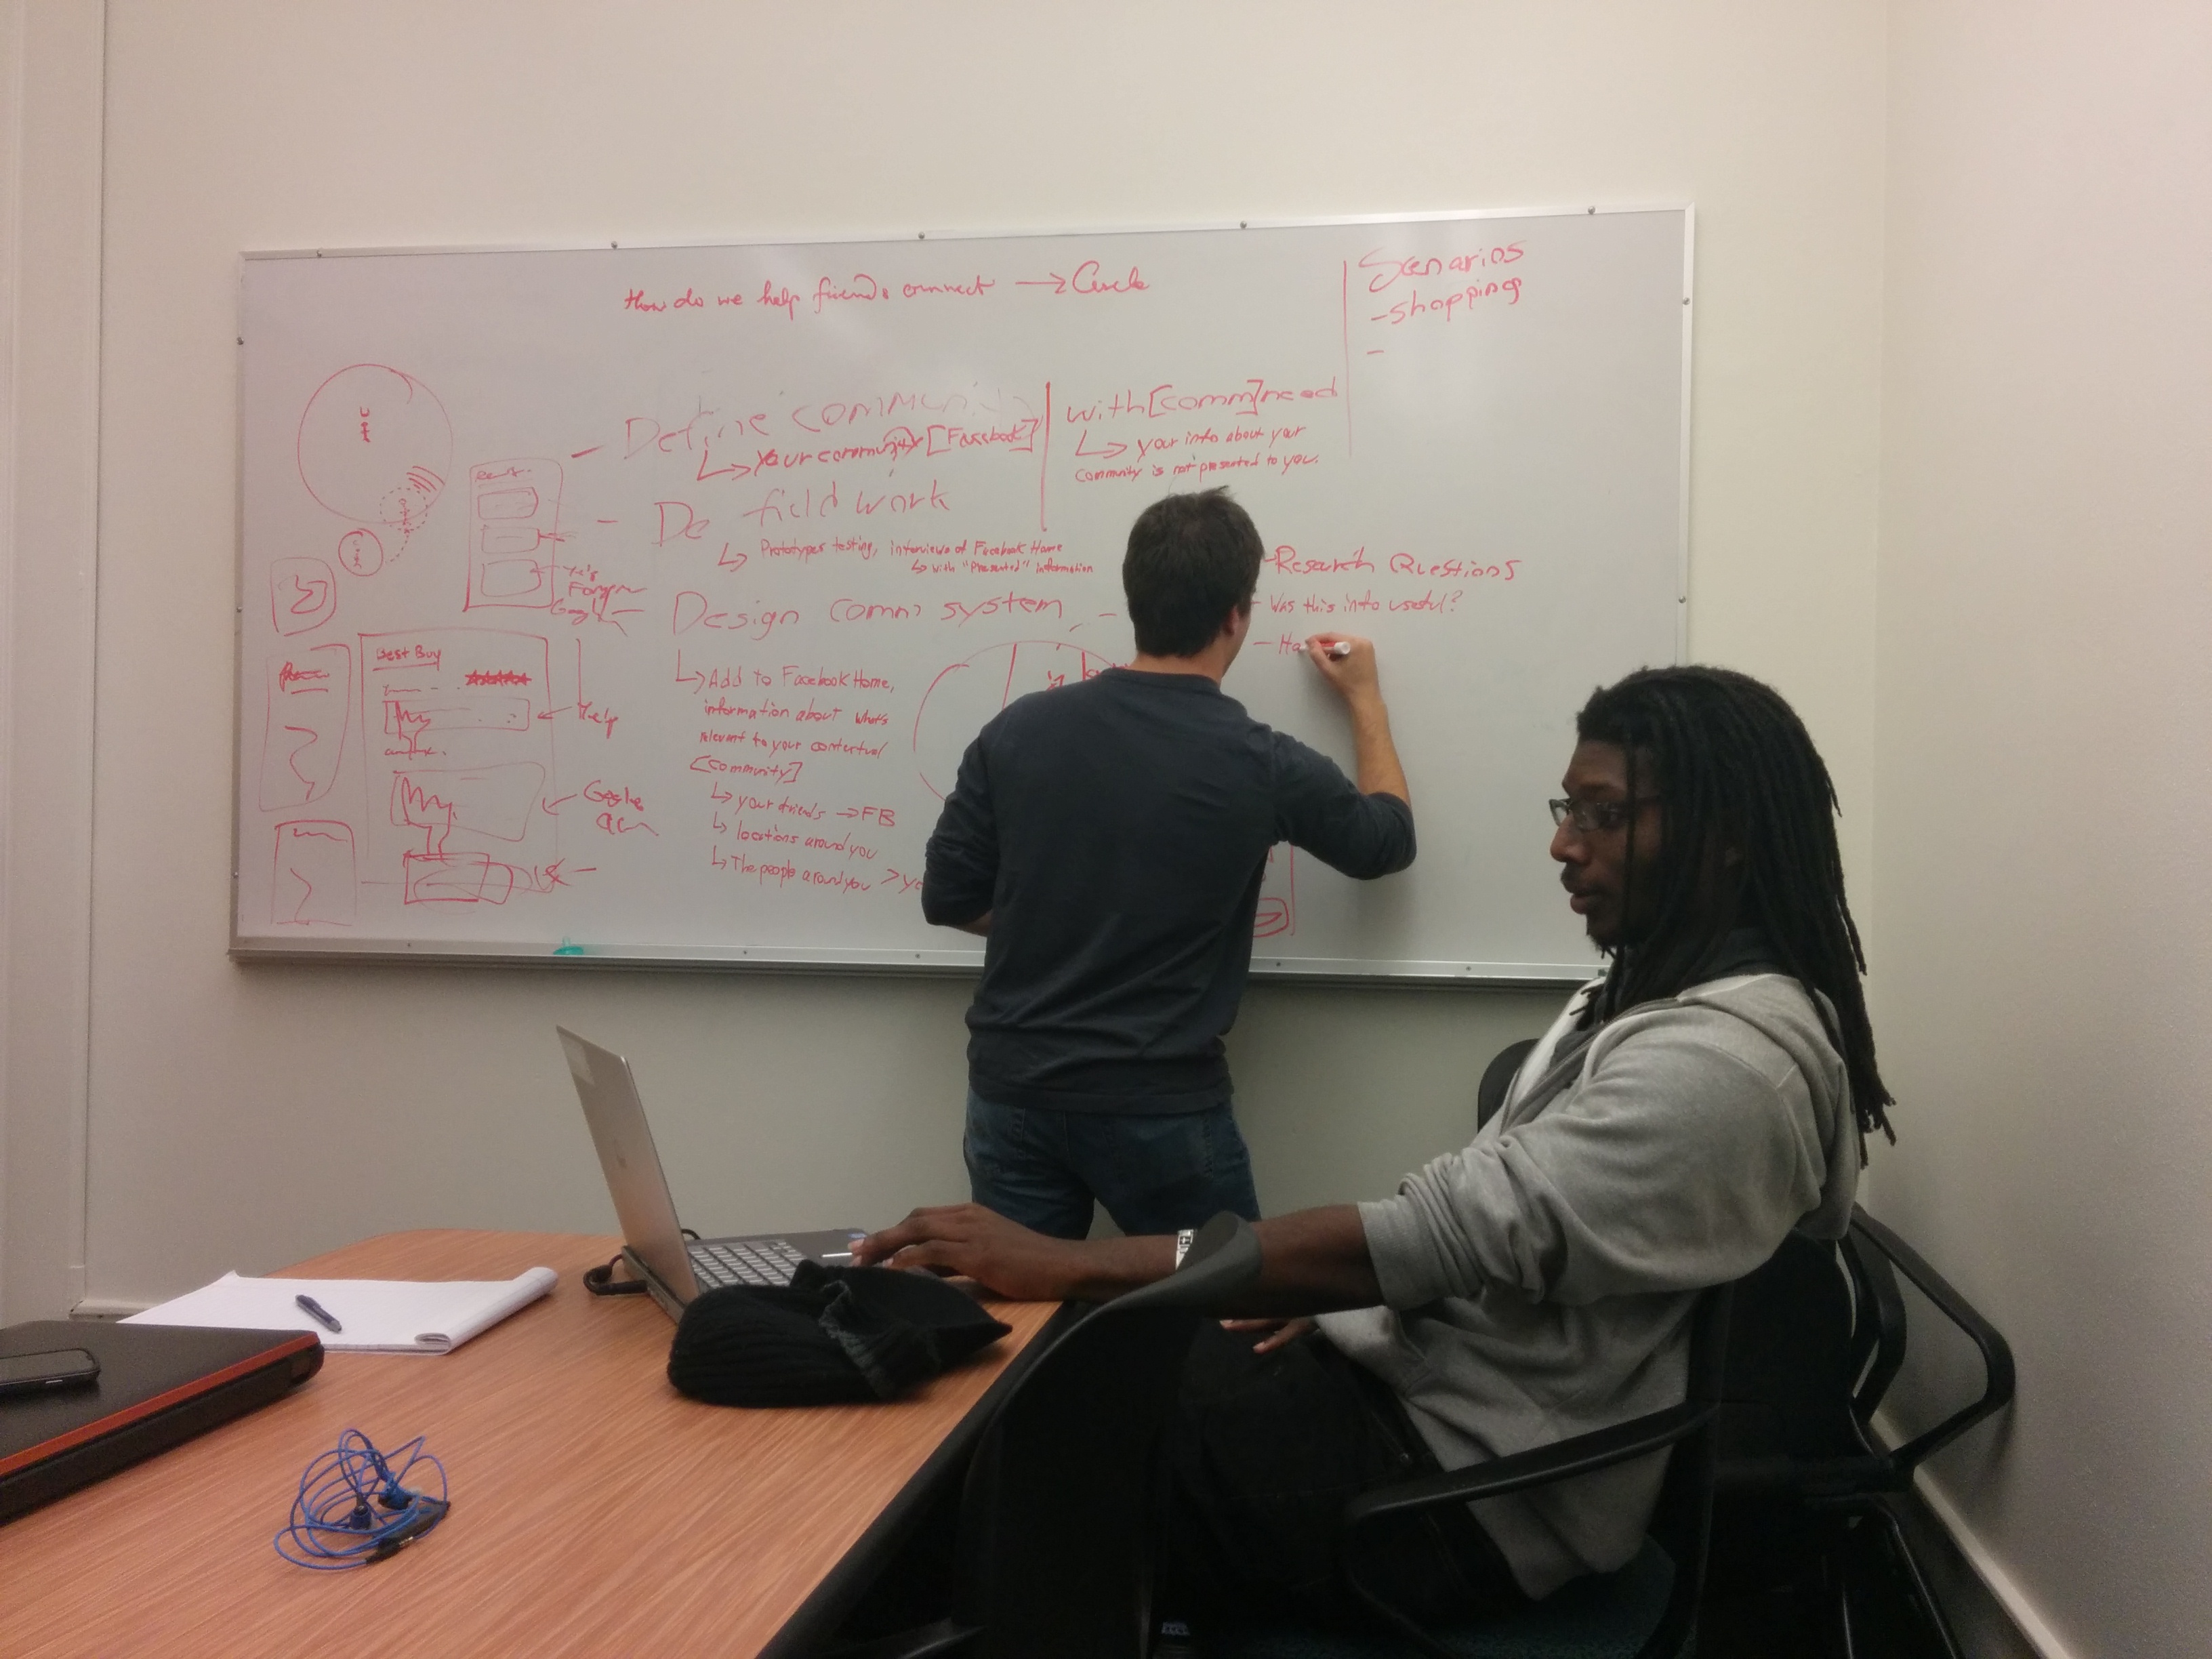 How do we help friends connect → Circle
Scenarios
- shopping
-
- Define community
↳ Your community [Facebook]
with [comm] need
↳ your info about your
community is not presented to you.
- Do field work
↳ Prototypes testing, interviews of Facebook Home
↳ with "presented" information
- Design comm system
↳ Add to Facebook Home,
information about what's
relevant to your contextual
[community]
↳ your friends → FB
↳ locations around you
↳ The people around you >
- Research Questions
- Was this info useful?
- Ha
Best Buy
Yelp
Google